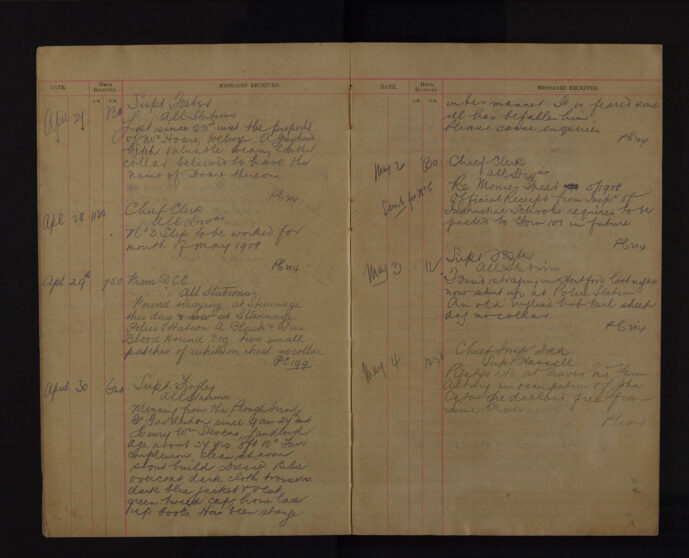 DATE. HOUR RECEIVED. A.M. P.M. MESSAGES RECEIVED.
April 27 130 Supt Foster
All Stations
Lost since 25th inst the property
of Mr Hoare, Welwyn A Greyhound
Bitch valuable wearing leather
collar believed to have the
name of Hoare thereon
PC 214
Apl 28 1130 Chief Clerk
All Divns
No 3 Slip to be worked for
month of May 1908
PC 214
Apl 29th 750 From DCC
All Stations
Found straying at Stevenage
this day & now at Stevenage
Police Station A Black & Tan
Blood Hound Dog two small
patches of white on chest no collar
PC 199
April 30 630 Supt
All Stations
Missing from the Plough Inn
Gt Gaddesdon since 9am 29 inst
Henry Wm Landlord
age about 34 yrs. 5ft 10in
complexion, clean shaven
stout build Dress: Blue
overcoat dark cloth trousers
dark blue jacket & vest
green tweed cap, brown lace
up boots. Has been strange
DATE. HOUR RECEIVED. A.M. P.M. MESSAGES RECEIVED.
in his manner. It is feared some
ill has befallen him
Please cause enquiries
PC 214
May 2 Chief Clerk
All Divns
Sent for Re Money Sheet 5/1908
Official Receipt from Inspr of
Industrial Schools required to be
pasted to Form 101 in future
PC 214
May 3 12 Supt
All Stations
Found straying in Hertford last night
now shut up at Police Station
An old bob tail sheep
dog no collar
PC 214
May 4 1230 Chief Inspr
Supt Hassell
at Farm
Albury in occupation of John
declared free from
PC 214